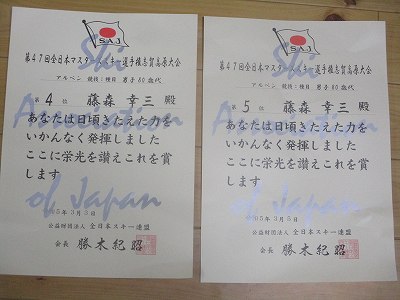 SAJ
第47回全日本マスターズスキー選手権志賀高原大会
アルペン 競技:種目 男子80歳代
第 4 位 藤森 幸三 殿
あなたは日頃きたえた力を
いかんなく発揮しました
ここに栄光を讃えこれを賞
します
5年3月3日
公益財団法人 全日本スキー連盟
会長 勝木紀昭
Ski
Association
of Japan
SAJ
第47回全日本マスターズスキー選手権志賀高原大会
アルペン 競技:種目 男子80歳代
第 5 位 藤森 幸三 殿
あなたは日頃きたえた力を
いかんなく発揮しました
ここに栄光を讃えこれを賞
します
5年3月3日
公益財団法人 全日本スキー連盟
会長 勝木紀昭
Ski
Association
of Japan